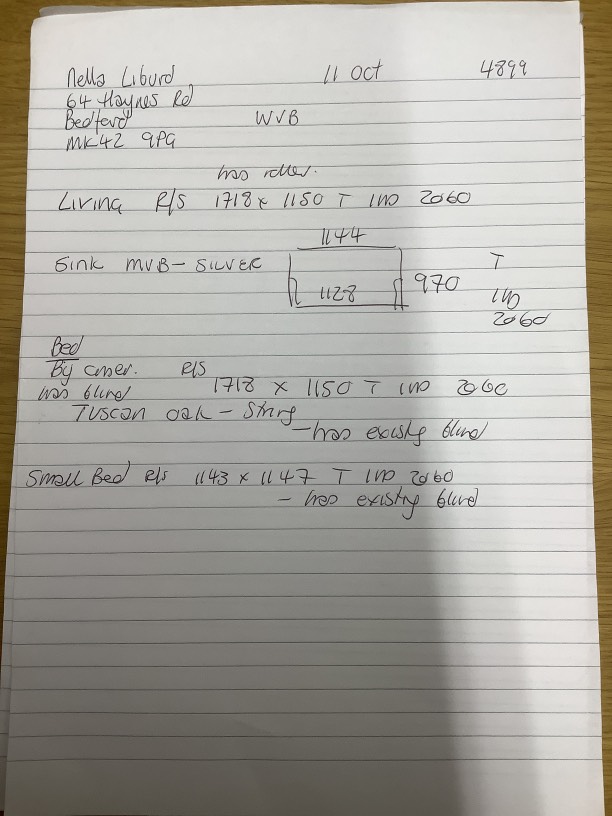 Nella Liburd 11 Oct 4899
64 Haynes Rd
Bedford WVB
MK42 9PG
has roller.
Living R/S 1718 x 1150 T IND 2060
1144
Sink MVB - SILVER 970 T
1128 IND
2060
Bed
By corner. R/S
was blind 1718 x 1150 T IND 2060
Tuscan oak - String
- has existing blind
Small Bed R/S 1143 x 1147 T IND 2060
- has existing blind